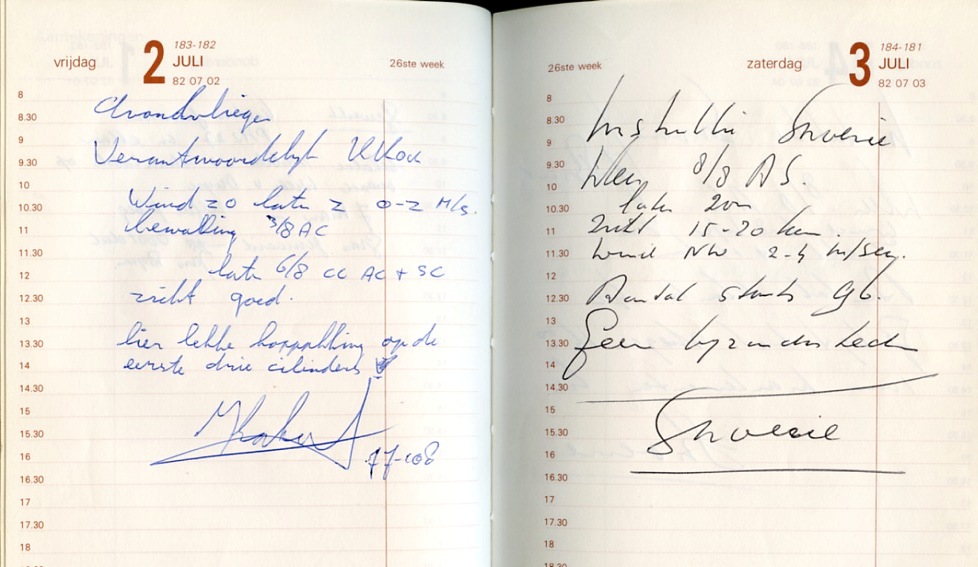 vrijdag 2 183-182
JULI
82 07 02
26ste week
8
8.30
9
9.30
10
10.30
11
11.30
12
12.30
13
13.30
14
14.30
15
15.30
16
16.30
17
17.30
18
Avondvliegen
Verantwoordelijk
Wind ZO later Z 0-2 M/s.
bewolking 3/8 AC
later 6/8 CC AC + SC
zicht goed.
lier lekke koppakking op de
eerste drie cilinders
77-108
26ste week
zaterdag 3 184-181
JULI
82 07 03
8
8.30
9
9.30
10
10.30
11
11.30
12
12.30
13
13.30
14
14.30
15
15.30
16
16.30
17
17.30
18
18.30
8/8 AS.
later
zicht 15-20 km.
wind NW 2-4 m/sec.
Aantal starts 96.
Geen bijzonderheden